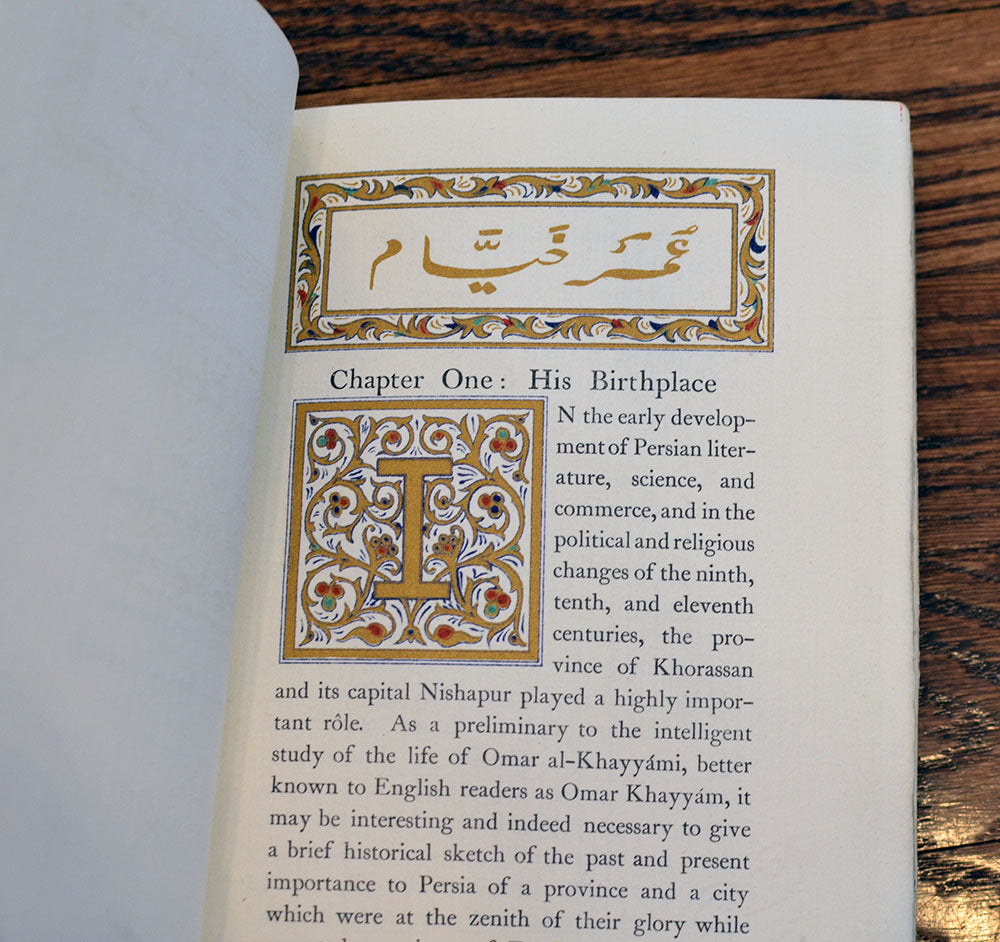 عُمَر خَيَّام
Chapter One: His Birthplace
IN the early develop-
ment of Persian liter-
ature, science, and
commerce, and in the
political and religious
changes of the ninth,
tenth, and eleventh
centuries, the pro-
vince of Khorassan
and its capital Nishapur played a highly impor-
tant rôle. As a preliminary to the intelligent
study of the life of Omar al-Khayyámi, better
known to English readers as Omar Khayyám, it
may be interesting and indeed necessary to give
a brief historical sketch of the past and present
importance to Persia of a province and a city
which were at the zenith of their glory while